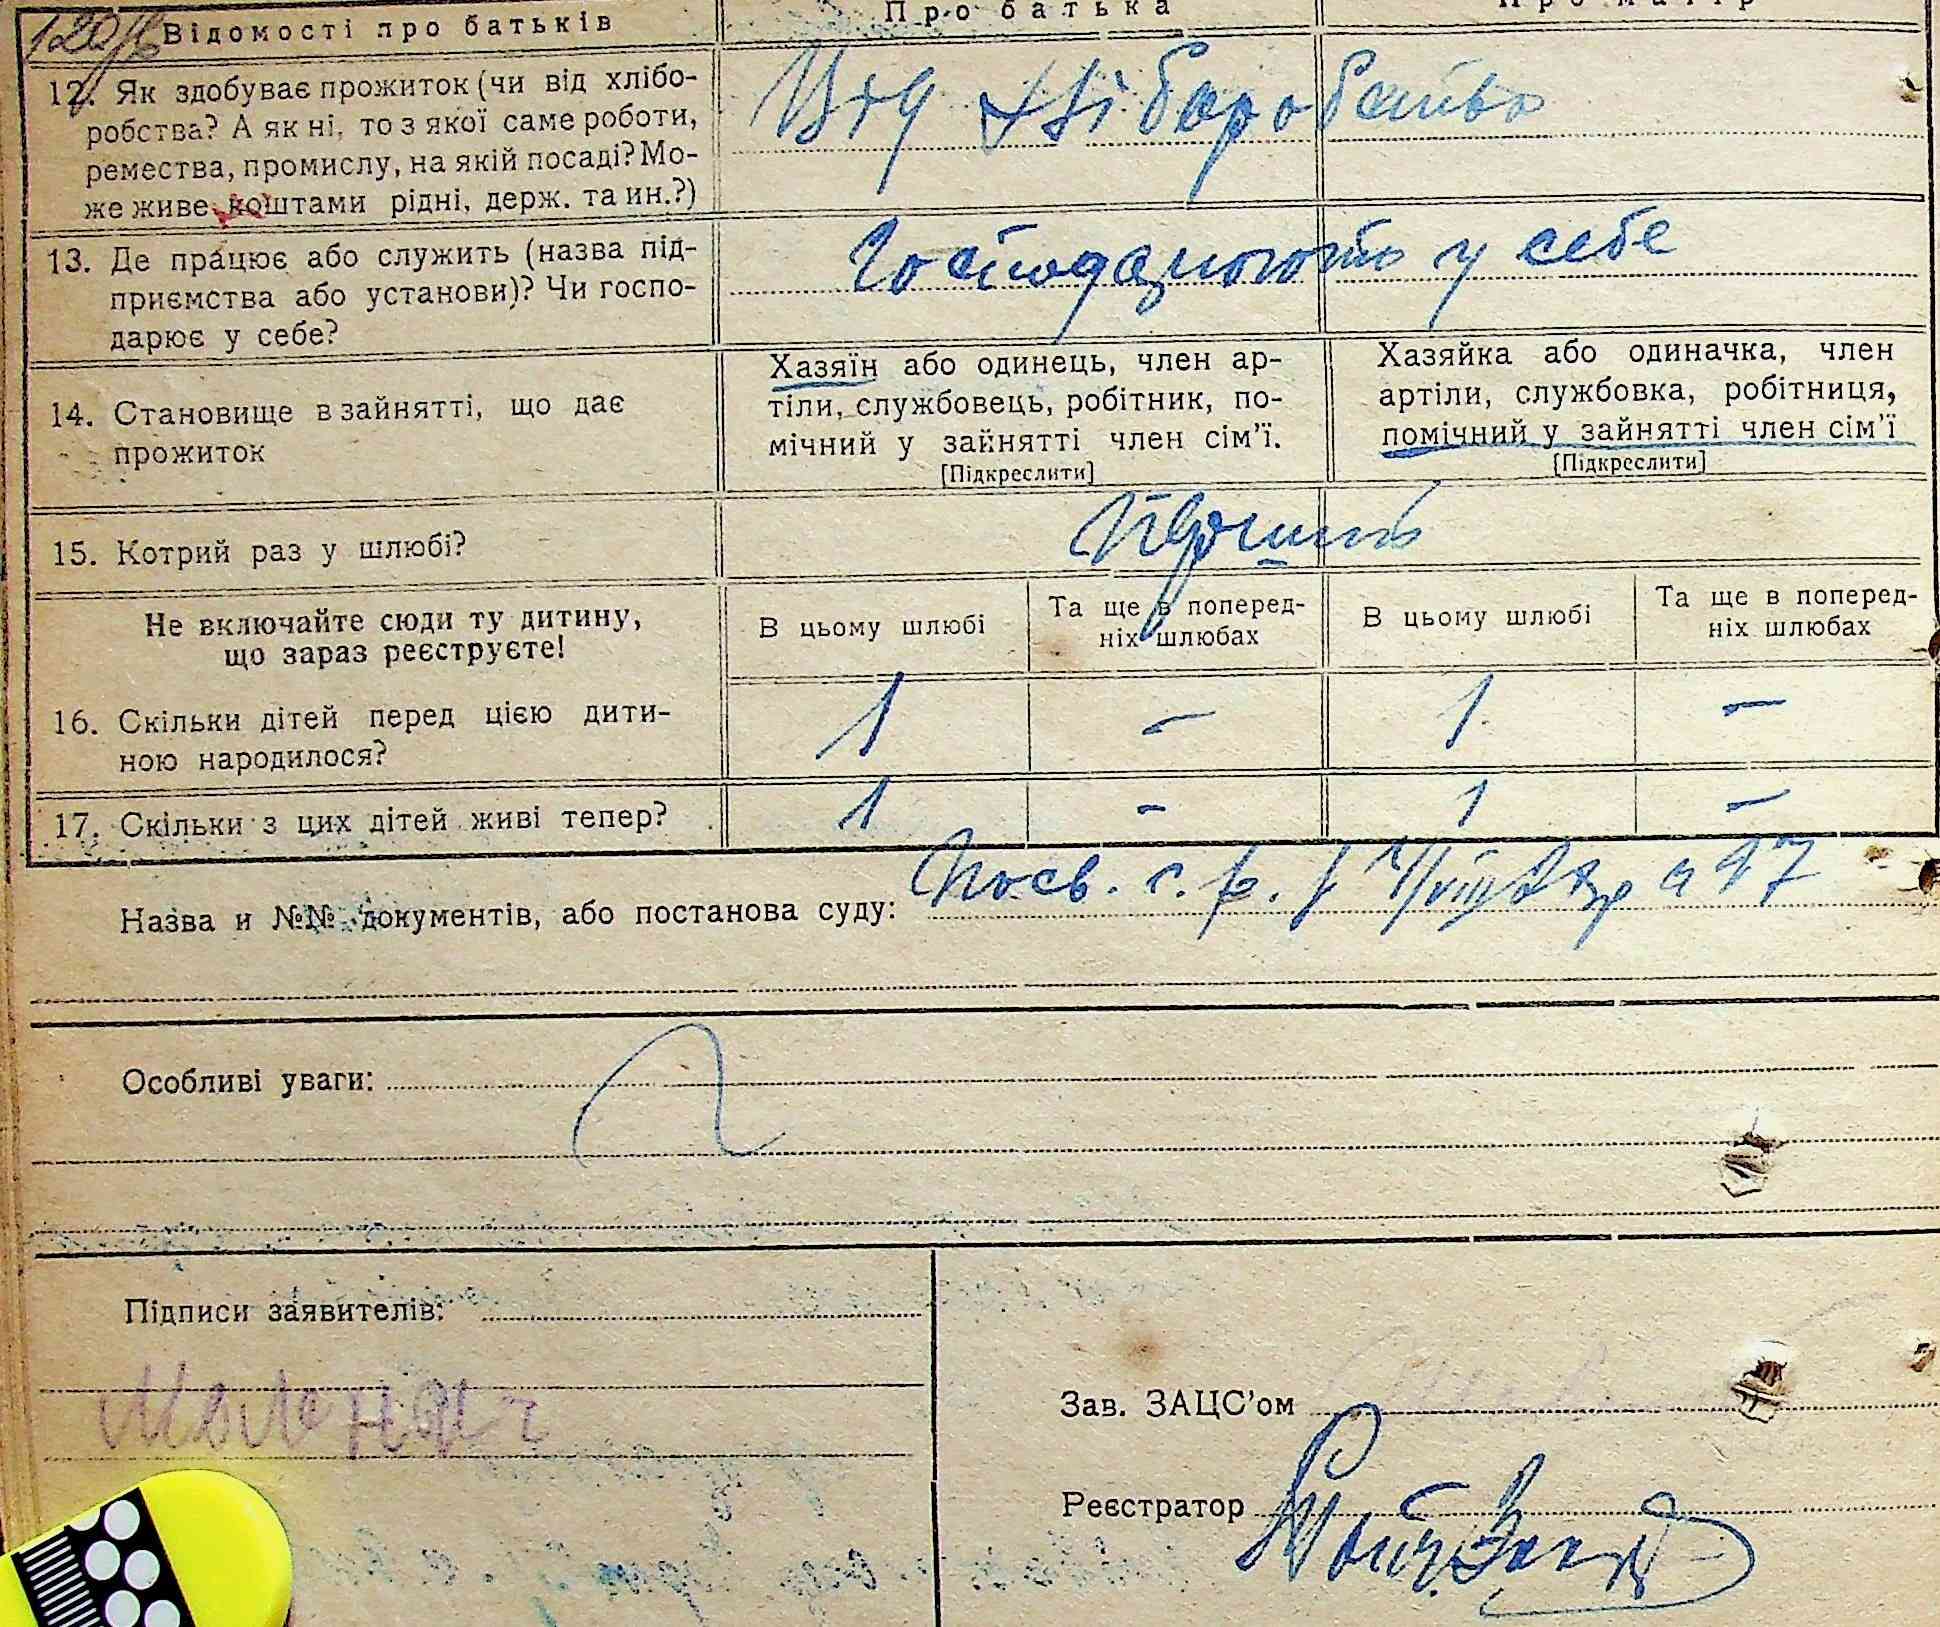 Відомості про батьків
Про батька
12. Як здобуває прожиток (чи від хлібо-
робства? А як ні, то з якої саме роботи,
ремества, промислу, на якій посаді? Мо-
же живе коштами рідні, держ. та ин.?)
Від хліборобства
13. Де працює або служить (назва під-
приємства або установи)? Чи госпо-
дарює у себе?
Господарюють у себе
14. Становище в зайнятті, що дає
прожиток
Хазяїн або одинець, член ар-
тіли, службовець, робітник, по-
мічний у зайнятті член сім'ї.
[Підкреслити]
Хазяйка або одиначка, член
артіли, службовка, робітниця,
помічний у зайнятті член сім'ї
[Підкреслити]
15. Котрий раз у шлюбі?
Не включайте сюди ту дитину,
що зараз реєструєте!
В цьому шлюбі
Та ще в поперед-
ніх шлюбах
В цьому шлюбі
Та ще в поперед-
ніх шлюбах
16. Скільки дітей перед цією дити-
ною народилося?
1 – 1 –
17. Скільки з цих дітей живі тепер?
1 - 1 –
Назва и №№ документів, або постанова суду: Посв. с. р.
Особливі уваги:
Підписи заявителів:
Зав. ЗАЦС'ом
Реєстратор